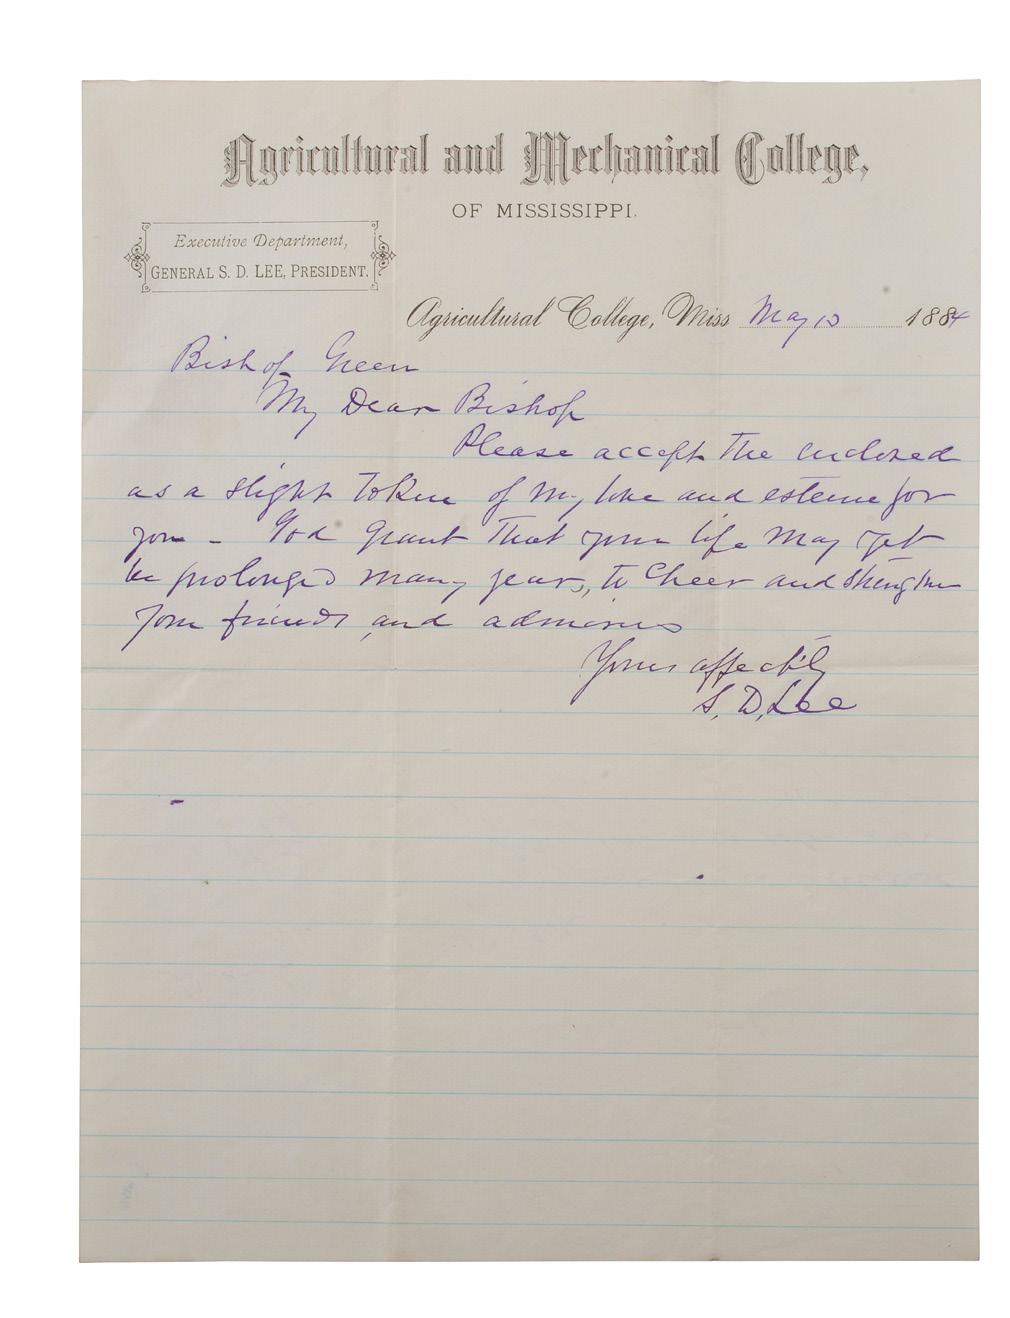 Agricultural and Mechanical College,
OF MISSISSIPPI.
Executive Department,
GENERAL S. D. LEE, PRESIDENT.
Agricultural College, Miss May 13 1884
Bishop Green
My Dear Bishop
Please accept the enclosed
as a slight token of my love and esteem for
you - God grant that your life may yet
be prolonged many years, to cheer and strengthen
your friends and admirers
Yours affect'ly
S. D. Lee